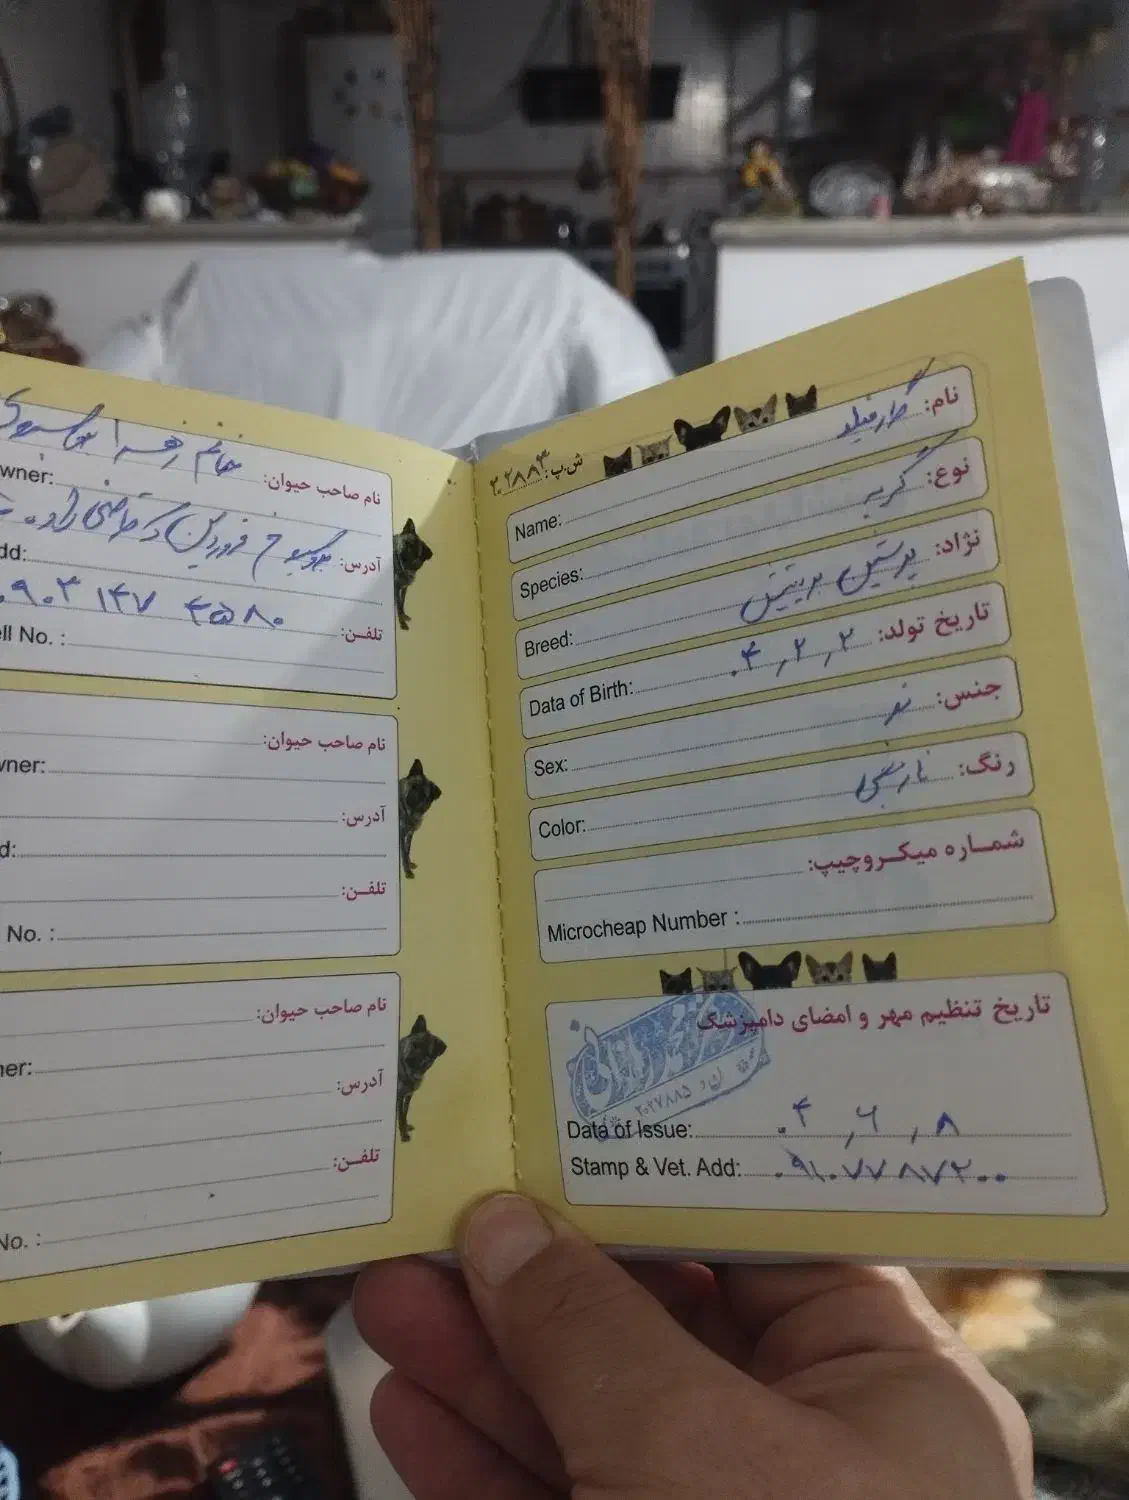 نام صاحب حیوان: خانم
wner:
آدرس:
dd:
تلفـن: ۰۹۰۳ ۱۴۷ ۴۵۸۰
ell No. :
نام صاحب حیوان:
wner:
آدرس:
d:
تلفـن:
No. :
نام صاحب حیوان:
ner:
آدرس:
:
تلفـن:
No. :
ش.پ: ۲۰۲۸۸۳
نام: گارفیلد
Name:
نوع: گربه
Species:
نژاد: پرشین بریتیش
Breed:
تاریخ تولد: ۰۴,۲,۲
Data of Birth:
جنس: نر
Sex:
رنگ: نارنجی
Color:
شمــاره میکـروچیپ:
Microcheap Number :
تاریخ تنظیم مهر و امضای دامپزشک
ن د ۲۰۲۷۸۸۵
Data of Issue: ۰۴,۶,۸
Stamp & Vet. Add: ۰۹۱۰۷۷۸۷۲۰۰